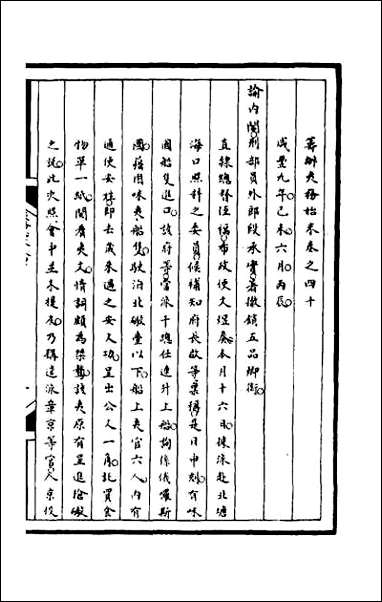 籌辦夷務始末卷之四十
咸豐九年己未六月丙辰
諭內閣刑部員外郎段承實著撤銷五品卿銜
直隸總督恆福布政使文煜奏本月十六日據派赴北塘
海口照料之委員候補知府長啟等稟稱是日申刻有咪
國船隻進口該府等當派千總任連升上船詢係俄羅斯
國藉用咪夷船隻駛泊北礮臺以下船上夷官六人內有
通使安姓即去歲來過之安文功呈出公文一角託買食
物單一紙閱廣夷文情詞頗為桀驁該夷原有呈進槍礮
之說此次照會中並未提及乃擬遣派章京等官人京復